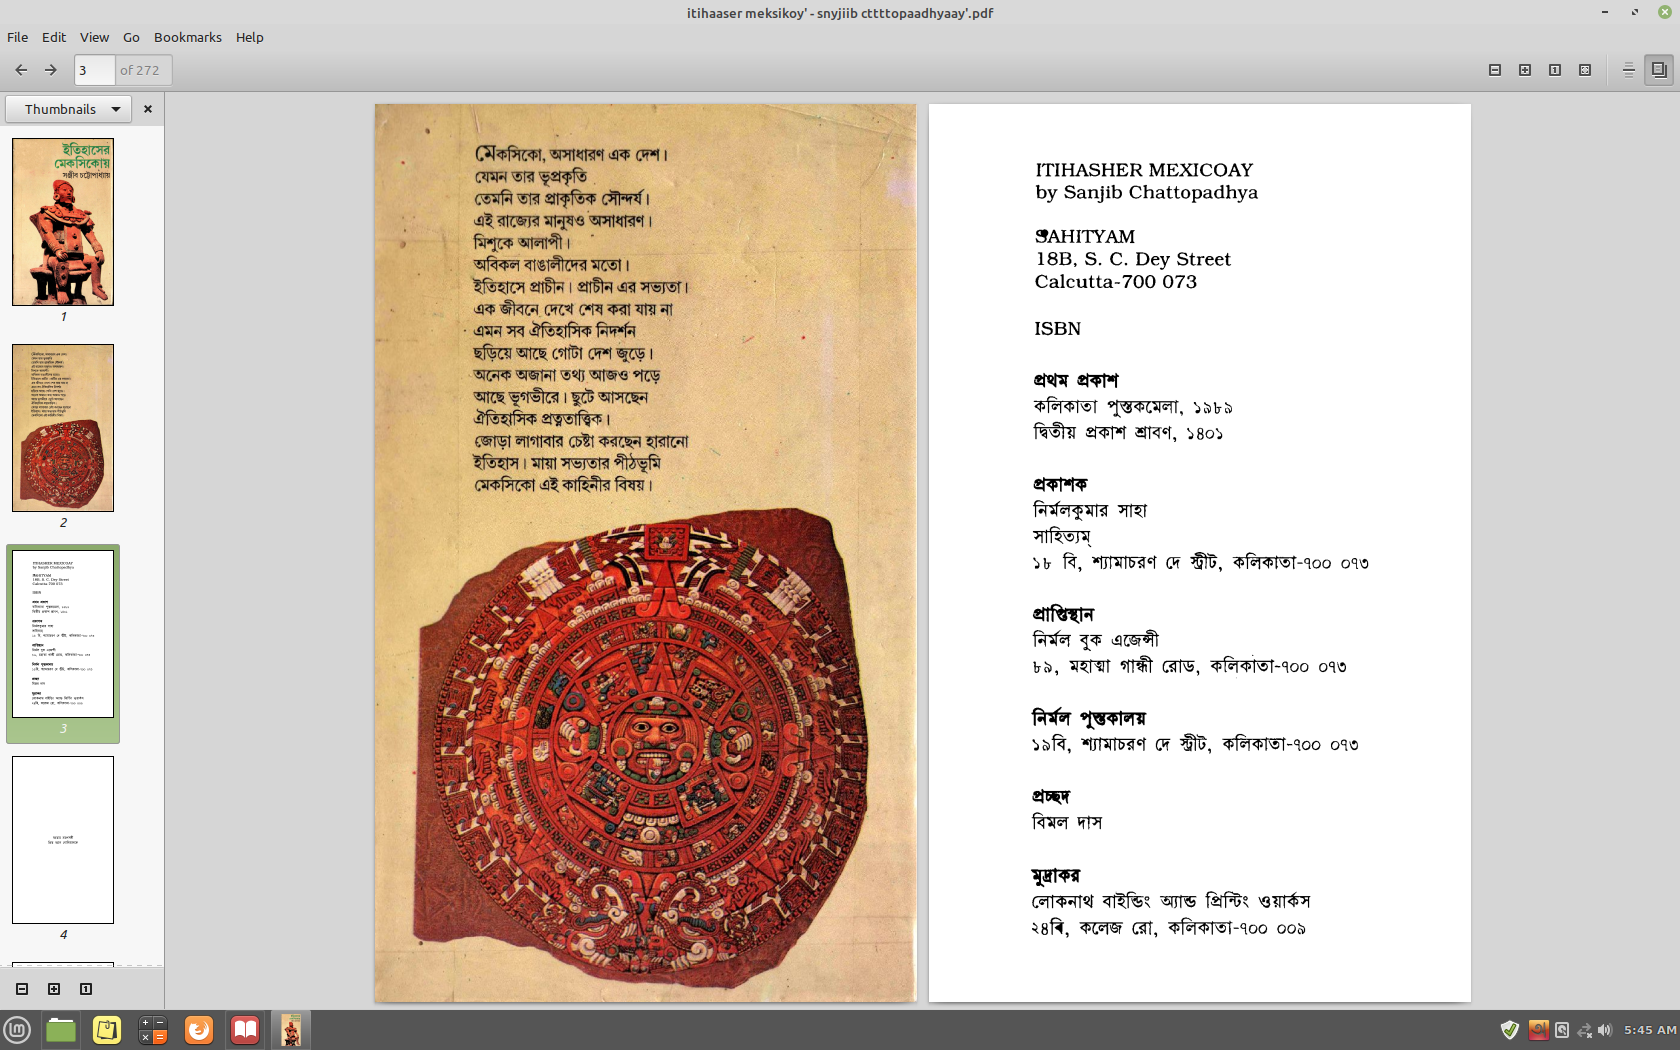 itihaaser meksikoy' - snyjiib cttttopaadhyaay'.pdf
File Edit View Go Bookmarks Help
3 of 272
Thumbnails
ইতিহাসের
মেকসিকোয়
সঞ্জীব চট্টোপাধ্যায়
1
2
3
4
মেকসিকো, অসাধারণ এক দেশ।
যেমন তার ভূপ্রকৃতি
তেমনি তার প্রাকৃতিক সৌন্দর্য।
এই রাজ্যের মানুষও অসাধারণ।
মিশুকে আলাপী।
অবিকল বাঙালীদের মতো।
ইতিহাসে প্রাচীন। প্রাচীন এর সভ্যতা।
এক জীবনে দেখে শেষ করা যায় না
এমন সব ঐতিহাসিক নিদর্শন
ছড়িয়ে আছে গোটা দেশ জুড়ে।
অনেক অজানা তথ্য আজও পড়ে
আছে ভূগর্ভীরে। ছুটে আসছেন
ঐতিহাসিক প্রত্নতাত্ত্বিক।
জোড়া লাগাবার চেষ্টা করছেন হারানো
ইতিহাস। মায়া সভ্যতার পীঠভূমি
মেকসিকো এই কাহিনীর বিষয়।
ITIHASHER MEXICOAY
by Sanjib Chattopadhya
SAHITYAM
18B, S. C. Dey Street
Calcutta-700 073
ISBN
প্রথম প্রকাশ
কলিকাতা পুস্তকমেলা, ১৯৮৯
দ্বিতীয় প্রকাশ শ্রাবণ, ১৪০১
প্রকাশক
নির্মলকুমার সাহা
সাহিত্যম্
১৮ বি, শ্যামাচরণ দে স্ট্রীট, কলিকাতা-৭০০ ০৭৩
প্রাপ্তিস্থান
নির্মল বুক এজেন্সী
৮৯, মহাত্মা গান্ধী রোড, কলিকাতা-৭০০ ০৭৩
নির্মল পুস্তকালয়
১৯বি, শ্যামাচরণ দে স্ট্রীট, কলিকাতা-৭০০ ০৭৩
প্রচ্ছদ
বিমল দাস
মুদ্রাকর
লোকনাথ বাইন্ডিং অ্যান্ড প্রিন্টিং ওয়ার্কস
২৪বি, কলেজ রো, কলিকাতা-৭০০ ০০৯
5:45 AM